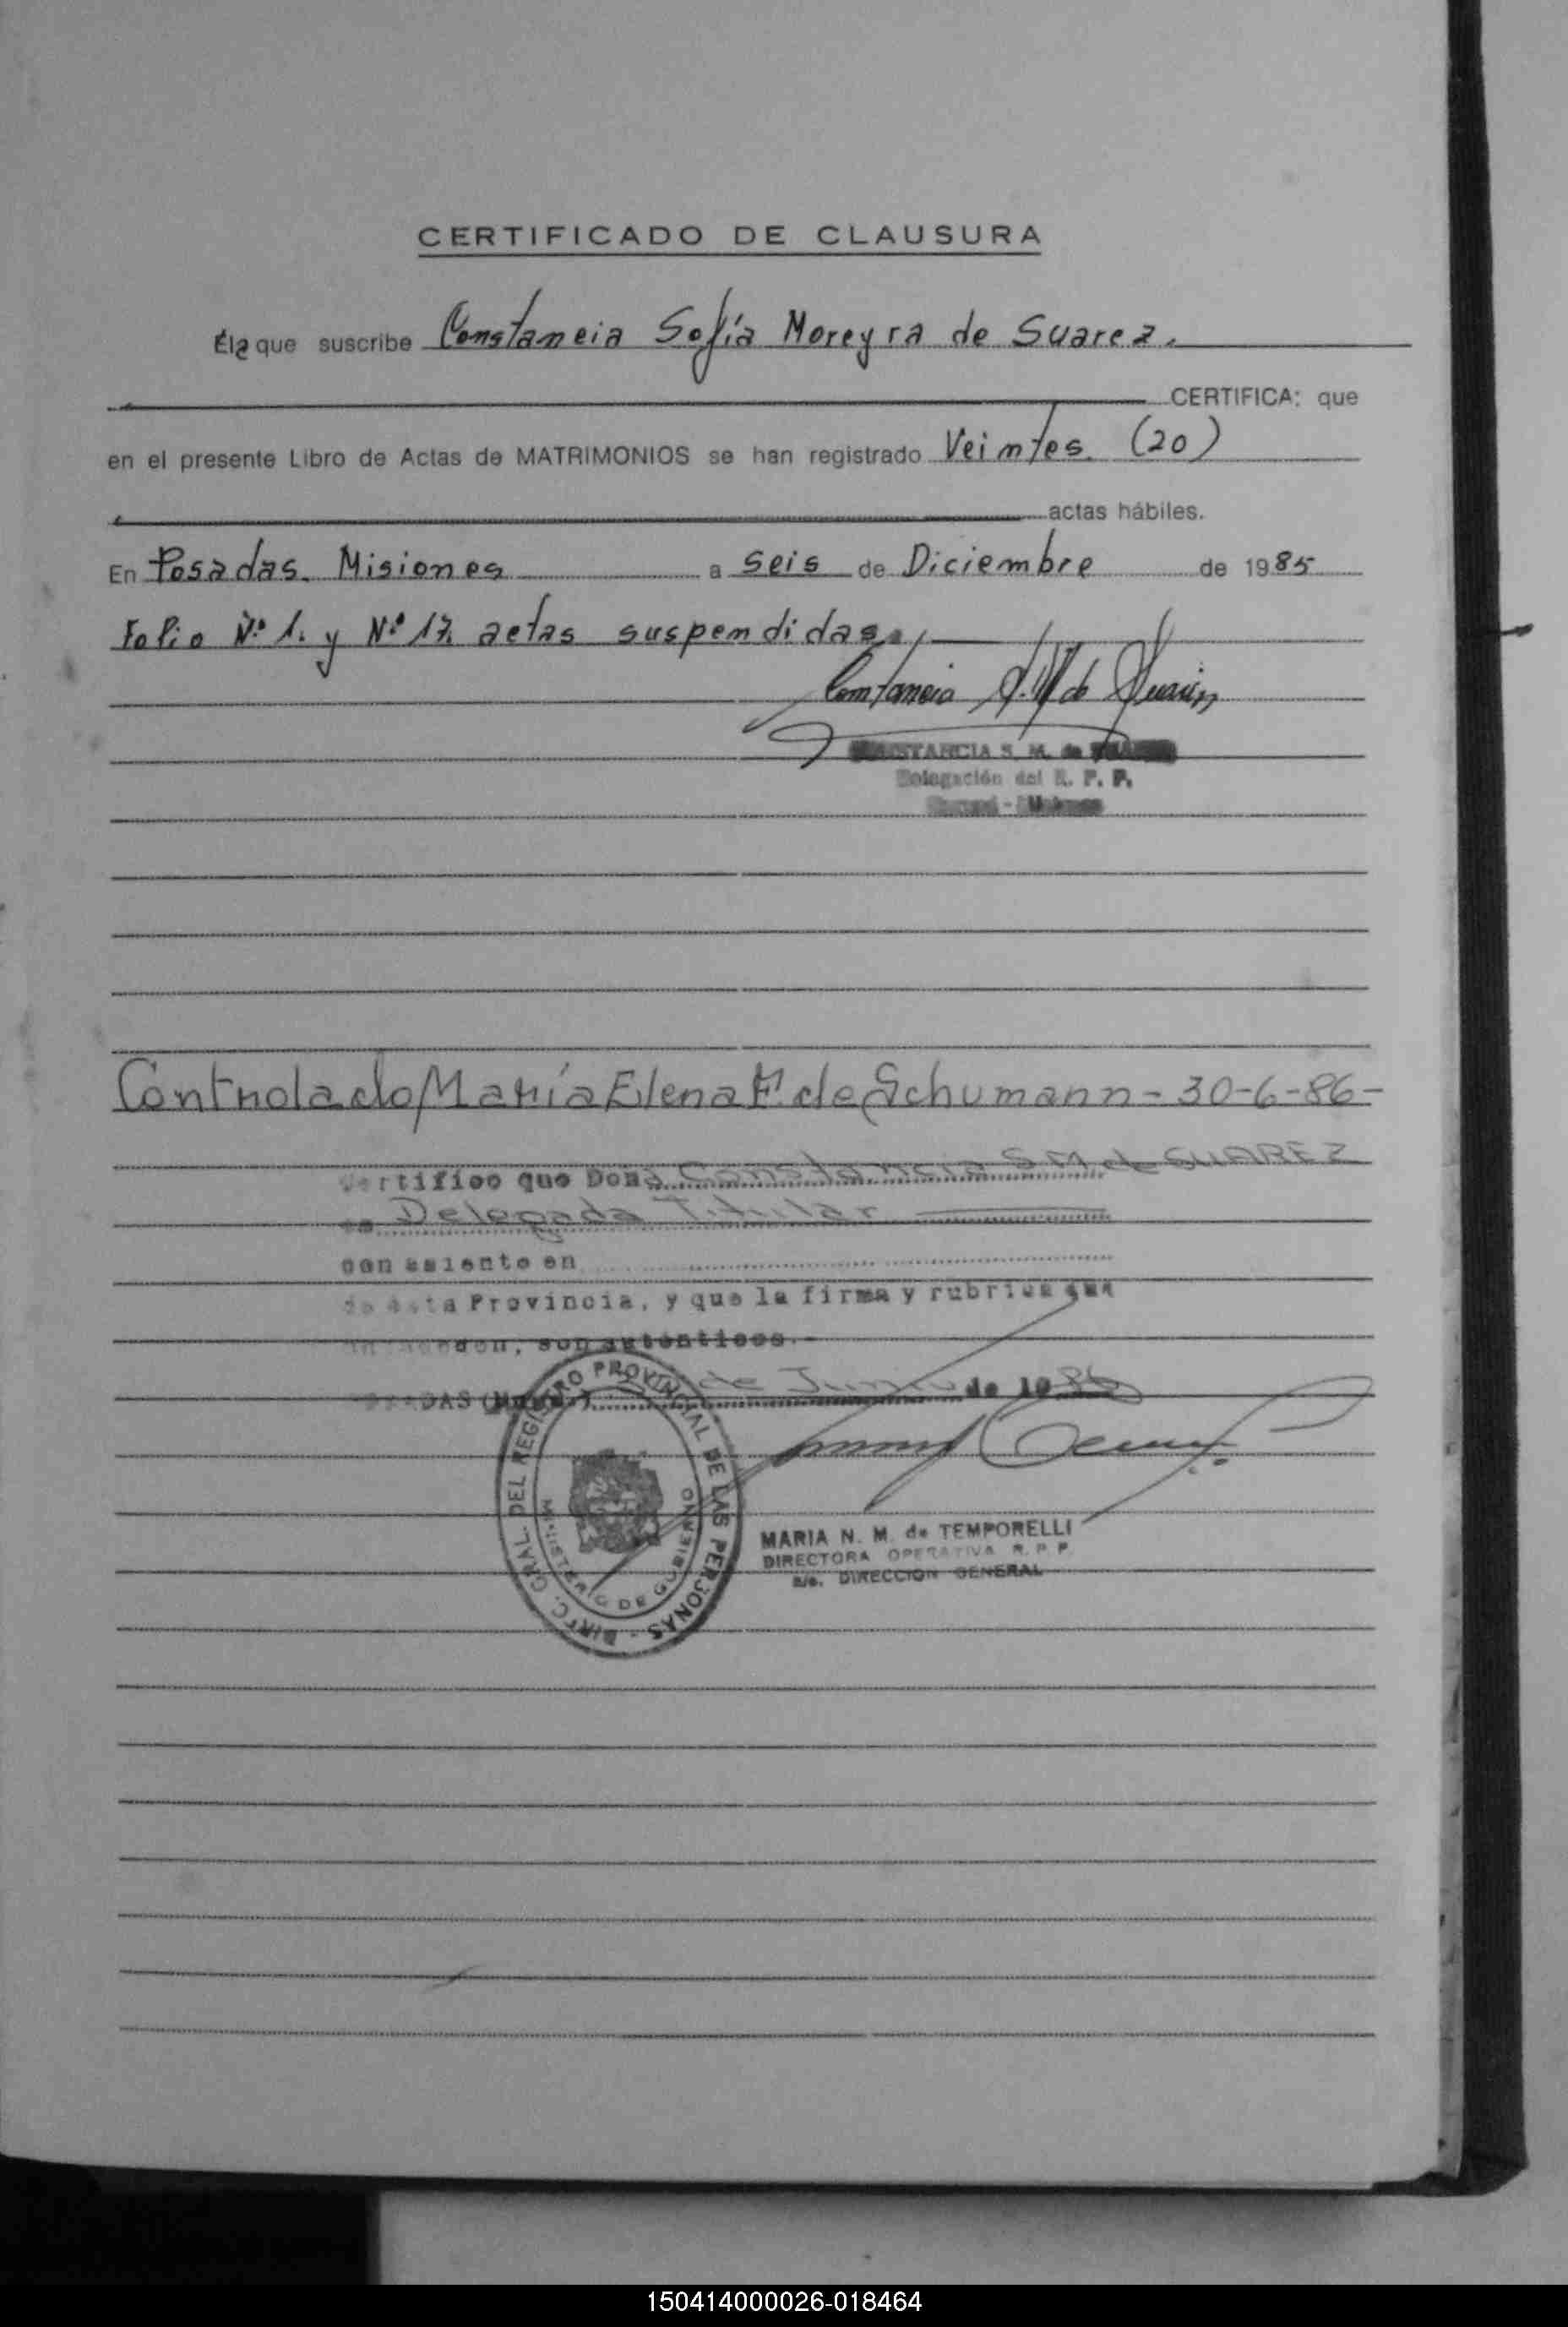 CERTIFICADO DE CLAUSURA
Él que suscribe Constancia Sofía Moreyra de Suarez.
CERTIFICA: que
en el presente Libro de Actas de MATRIMONIOS se han registrado Veintes. (20)
actas hábiles.
En Posadas. Misiones a seis de Diciembre de 1985
Folio N° 1. y N° 17. actas suspendidas.
Constancia S. M de Suarez
S. M. de
Delegación del R. P. P.
Controlado María Elena F. de Schumann - 30-6-86 -
Certifico que Doña Constancia S M de SUAREZ
es Delegada Titular
con asiento en
de esta Provincia, y que la firma y rubrica que
anteceden, son autenticos.-
de Junio de 1986
DIREC. GRAL. DEL REGISTRO PROVINCIAL DE LAS PERSONAS -
MINISTERIO DE GOBIERNO
MARIA N. M. de TEMPORELLI
DIRECTORA OPERATIVA R. P. P.
a/c. DIRECCION GENERAL
150414000026-018464